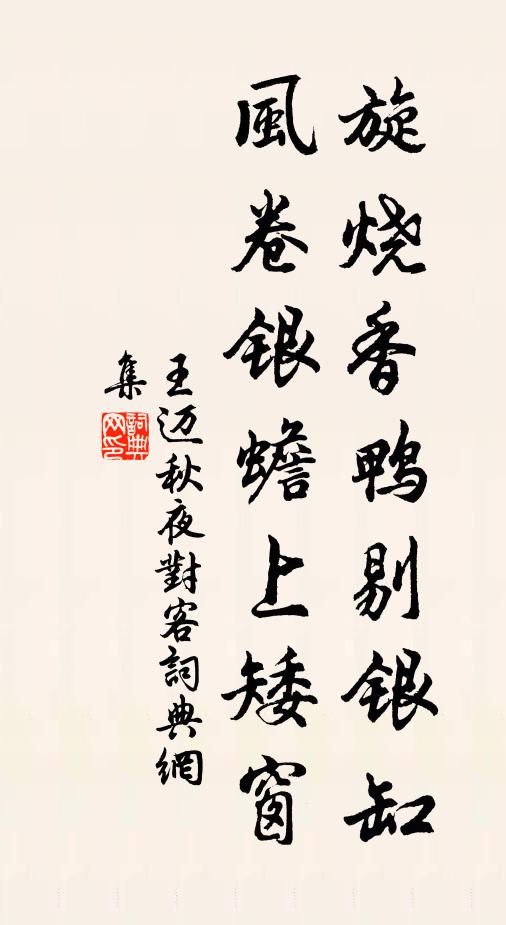 旋烧香鴨剔银缸
風卷银蟾上矮窗
王迈秋夜對客詞典網
集
詞典網印